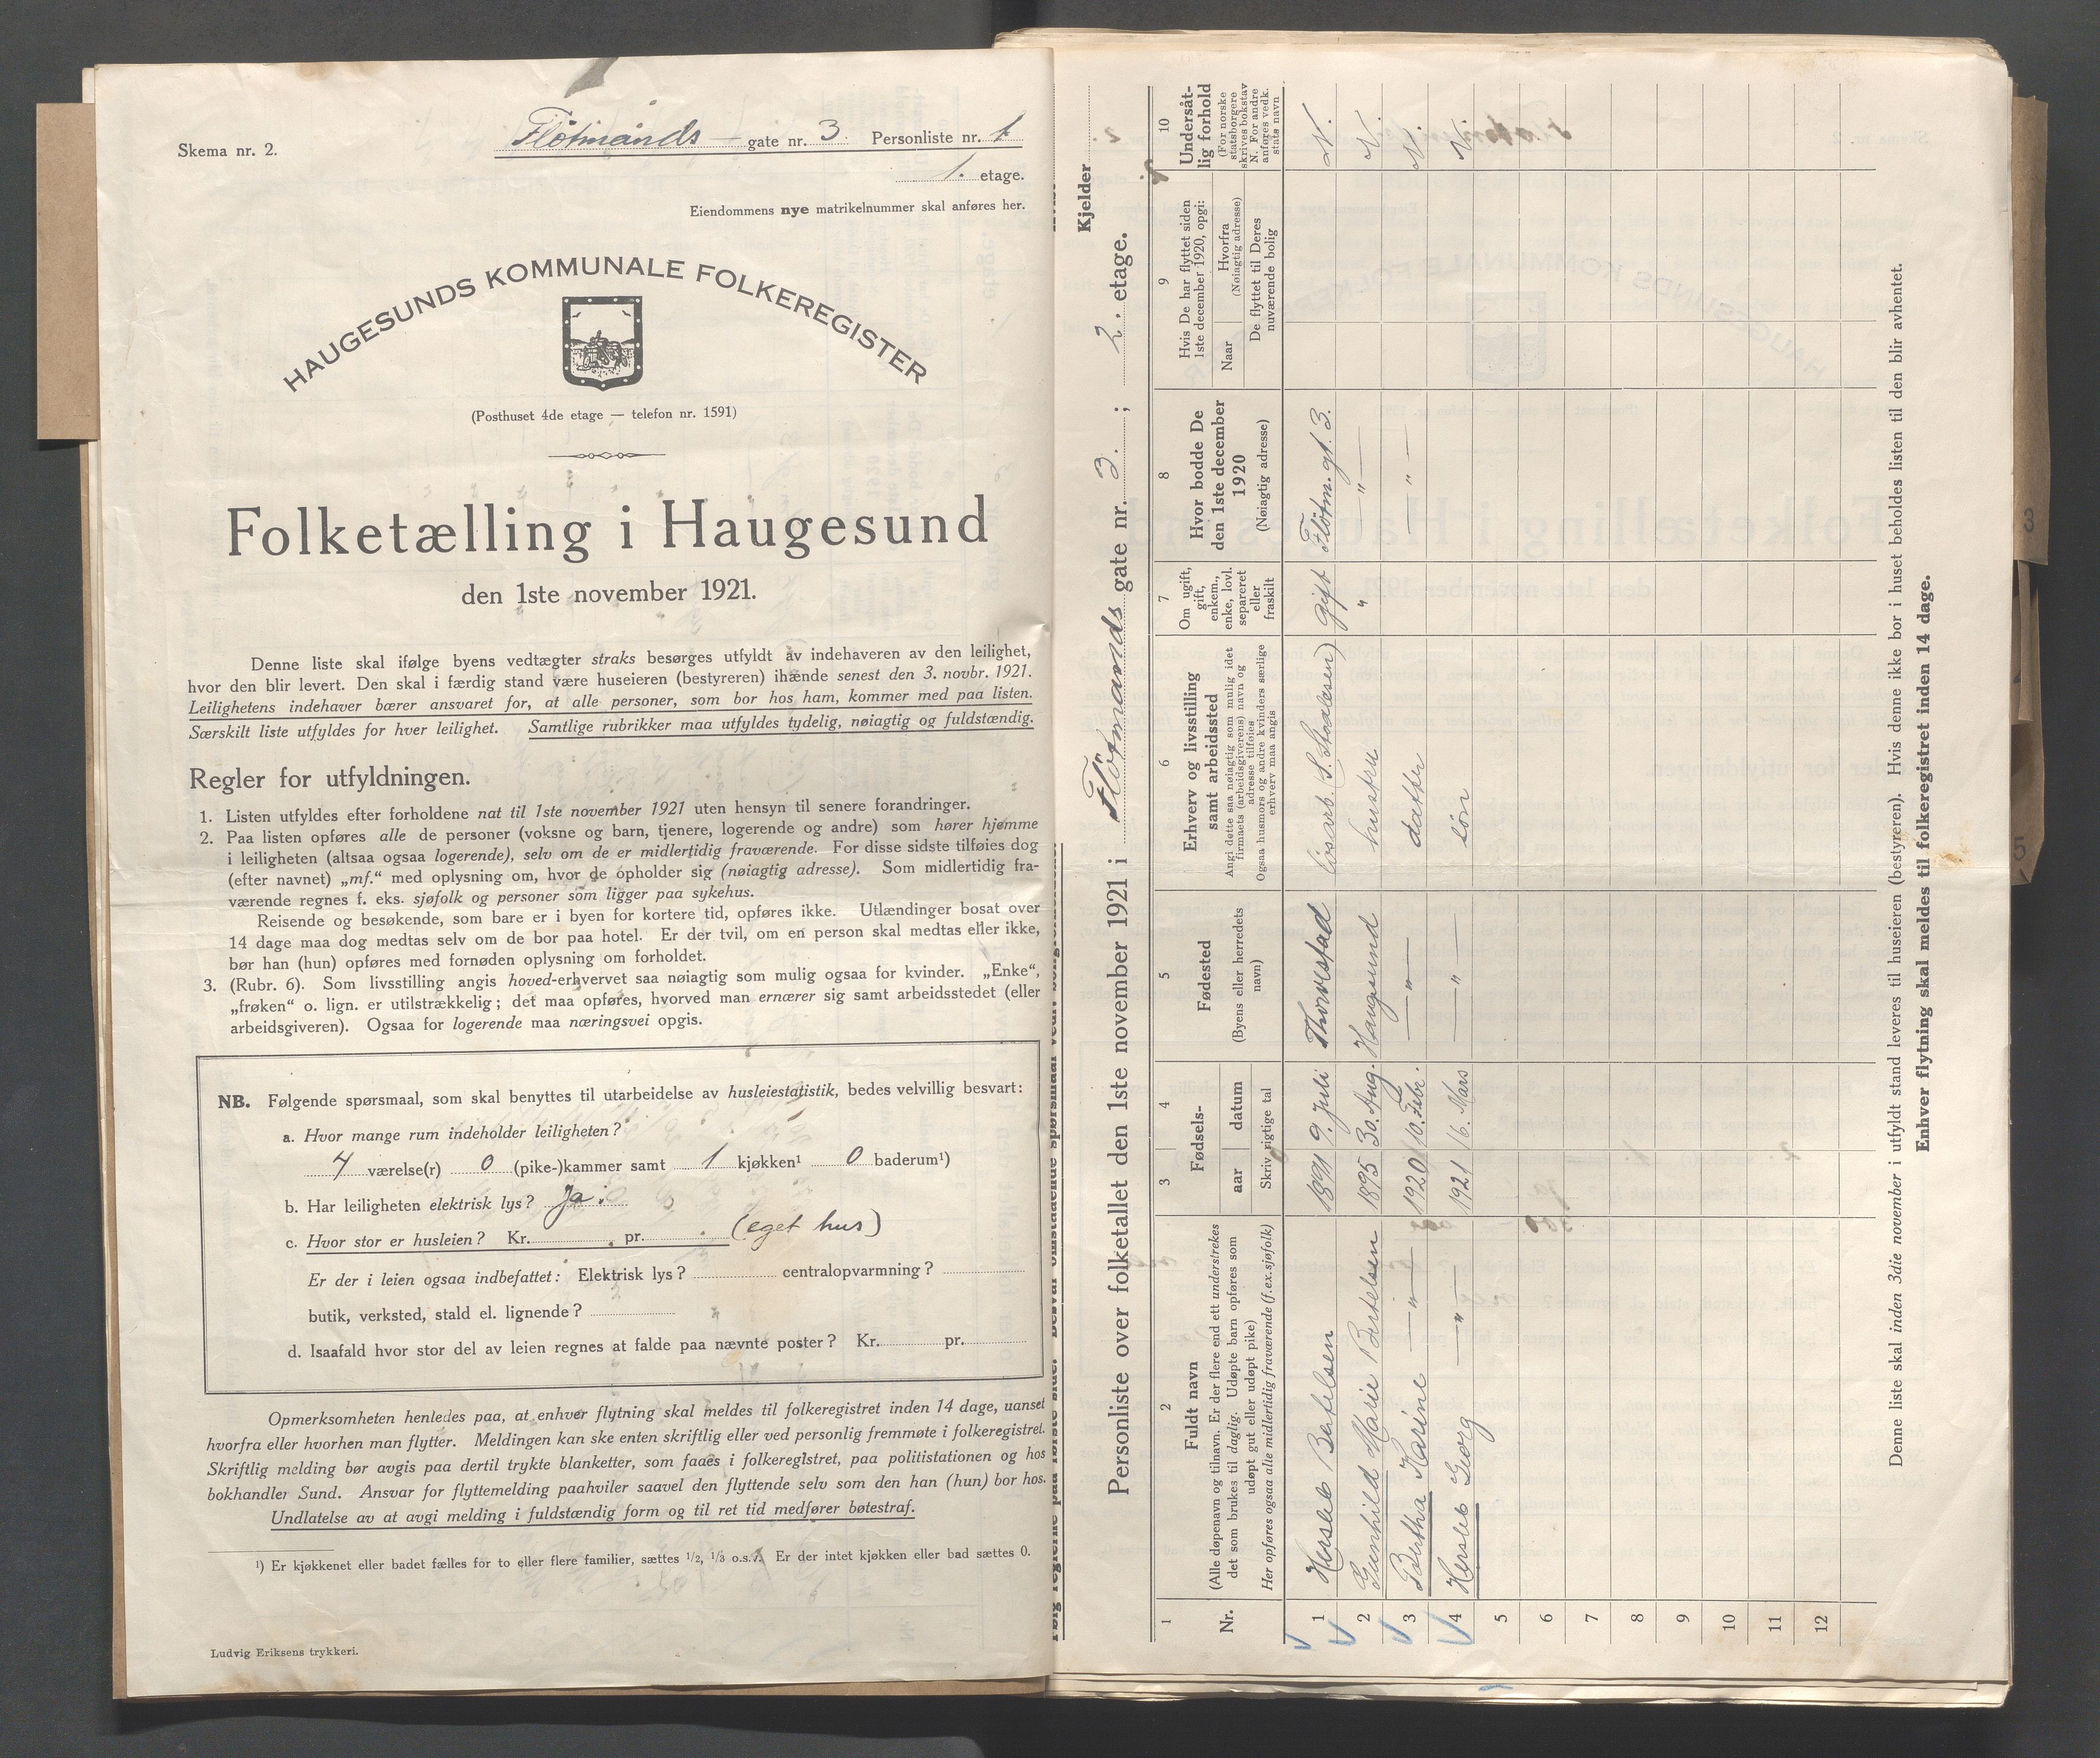 Skema nr. 2.
Flötmands gate nr. 3. Personliste nr. 1.
1. etage.
Eiendommens nye matrikelnummer skal anføres her.
HAUGESUNDS KOMMUNALE FOLKEREGISTER
(Posthuset 4de etage — telefon nr. 1591)
Folketælling i Haugesund
den 1ste november 1921.
Denne liste skal ifølge byens vedtægter straks besørges utfyldt av indehaveren av den leilighet,
hvor den blir levert. Den skal i færdig stand være huseieren (bestyreren) ihænde senest den 3. novbr. 1921.
Leilighetens indehaver bærer ansvaret for, at alle personer, som bor hos ham, kommer med paa listen.
Særskilt liste utfyldes for hver leilighet. Samtlige rubrikker maa utfyldes tydelig, nøiagtig og fuldstændig.
Regler for utfyldningen.
1. Listen utfyldes efter forholdene nat til 1ste november 1921 uten hensyn til senere forandringer.
2. Paa listen opføres alle de personer (voksne og barn, tjenere, logerende og andre) som hører hjemme
i leiligheten (altsaa ogsaa logerende), selv om de er midlertidig fraværende. For disse sidste tilføies dog
(efter navnet) „mf.“ med oplysning om, hvor de opholder sig (nøiagtig adresse). Som midlertidig fra-
værende regnes f. eks. sjøfolk og personer som ligger paa sykehus.
Reisende og besøkende, som bare er i byen for kortere tid, opføres ikke. Utlændinger bosat over
14 dage maa dog medtas selv om de bor paa hotel. Er der tvil, om en person skal medtas eller ikke,
bør han (hun) opføres med fornøden oplysning om forholdet.
3. (Rubr. 6). Som livsstilling angis hoved-erhvervet saa nøiagtig som mulig ogsaa for kvinder. „Enke“,
„frøken“ o. lign. er utilstrækkelig; det maa opføres, hvorved man ernærer sig samt arbeidsstedet (eller
arbeidsgiveren). Ogsaa for logerende maa næringsvei opgis.
NB. Følgende spørsmaal, som skal benyttes til utarbeidelse av husleiestatistik, bedes velvillig besvart:
a. Hvor mange rum indeholder leiligheten?
4 værelse(r) 0 (pike-)kammer samt 1 kjøkken¹ 0 baderum¹)
b. Har leiligheten elektrisk lys? Ja.
c. Hvor stor er husleien? Kr. pr. (eget hus)
Er der i leien ogsaa indbefattet: Elektrisk lys? centralopvarmning?
butik, verksted, stald el. lignende?
d. Isaafald hvor stor del av leien regnes at falde paa nævnte poster? Kr. pr.
Opmerksomheten henledes paa, at enhver flytning skal meldes til folkeregistret inden 14 dage, uanset
hvorfra eller hvorhen man flytter. Meldingen kan ske enten skriftlig eller ved personlig fremmøte i folkeregistret.
Skriftlig melding bør avgis paa dertil trykte blanketter, som faaes i folkeregistret, paa politistationen og hos
bokhandler Sund. Ansvar for flyttemelding paahviler saavel den flyttende selv som den han (hun) bor hos.
Undlatelse av at avgi melding i fuldstændig form og til ret tid medfører bøtestraf.
¹) Er kjøkkenet eller badet fælles for to eller flere familier, sættes 1/2, 1/3 o.s.v. Er der intet kjøkken eller bad sættes 0.
Ludvig Eriksens trykkeri.
Kjelder
Personliste over folketallet den 1ste november 1921 i Flötmands gate nr. 3. ; 2. etage.
1 2 3 4 5 6 7 8 9 10
Nr.
Fuldt navn
(Alle døpenavn og tilnavn. Er der flere end ett understrekes
det som brukes til daglig. Udøpte barn opføres som
udøpt gut eller udøpt pike)
Her opføres ogsaa alle midlertidig fraværende (f.ex.sjøfolk)
Fødsels-
aar datum
Skriv rigtige tal
Fødested
(Byens eller herredets
navn)
Erhverv og livsstilling
samt arbeidssted
Angi dette saa nøiagtig som mulig idet
firmaets (arbeidsgiverens) navn og
adresse tilføies
Ogsaa husmors og andre kvinders særlige
erhverv maa angis
Om ugift,
gift,
enkem.,
enke, lovl.
separeret
eller
fraskilt
Hvor bodde De
den 1ste december
1920
(Nøiagtig adresse)
Hvis De har flyttet siden
1ste december 1920, opgi:
Naar
Hvorfra
(Nøiagtig adresse)
De flyttet til Deres
nuværende bolig
Undersåt-
lig forhold
(For norske
statsborgere
skrives bokstav
N. For andre
anføres vedk.
stats navn
1 Hersleb Bertelsen 1891 9. Juli Thorvestad lösarb. (S. Staalesen) gift Flötm.gt. 3. N.
2 Gunhild Marie Bertelsen 1895 30. Aug. Haugesund hustru " — " — N.
3 Bertha Karine — " — 1920 10. Febr. — " — datter — " — N.
4 Hersleb Georg — " — 1921 6. Mars — " — sön N.
5
6
7
8
9
10
11
12
Denne liste skal inden 3die november i utfyldt stand leveres til huseieren (bestyreren). Hvis denne ikke bor i huset beholdes listen til den blir avhentet.
Enhver flytning skal meldes til folkeregistret inden 14 dage.